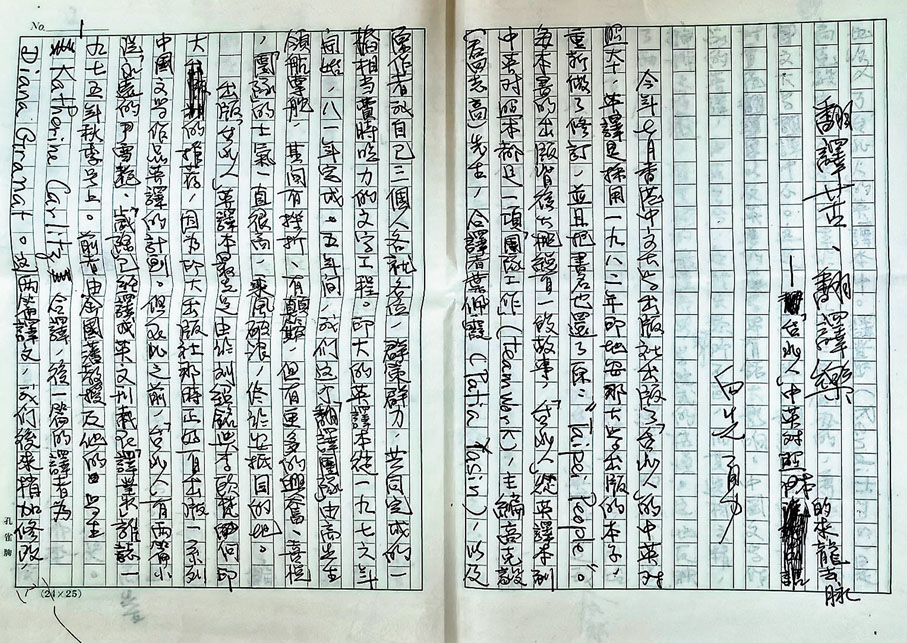 No. 1
翻譯苦、翻譯樂
——「台北人」中英對照本的來龍去脈
白先勇
今年七月香港中文大學出版社出版了「台北人」的中英對
照本，英譯是採用一九八二年印地安那大學出版的本子，
重新做了修訂，並且把書名也還了原：“Taipei People”。
每本書的出版背後大概總有一段故事，「台北人」從英譯本到
中英對照本都是一項「團隊工作」(teamwork)，主編高克毅
(喬志高)先生，合譯者葉佩霞(Patia Yasin)，以及
原作者我自己三個人各就各位，群策群力，共同完成的一
樁相當費時吃力的文字工程。印大的英譯本從一九七六年
開始，八一年完成。五年間，我們這個「翻譯團隊」由高先生
領航掌舵，其間有挫折、有顛簸，但有更多的興奮、喜悅
，團隊的士氣一直很高，乘風破浪，終於安抵目的地。
出版「台北人」英譯本最先是由於劉紹銘與李歐梵向印
大的推荐，因為印大出版社那時正好有出版一系列
中國文學作品英譯的計劃。但在此之前，「台北人」有兩篇小
說「永遠的尹雪艷」、「歲除」已經譯成英文刊載於「譯叢」雜誌一
九七五年秋季號上。前者由余國藩教授及他的學生
Katherine Carlitz合譯，後一篇的譯者為
Diana Granat。這兩篇譯文，我們後來稍加修改，
孔雀牌
(24×25)